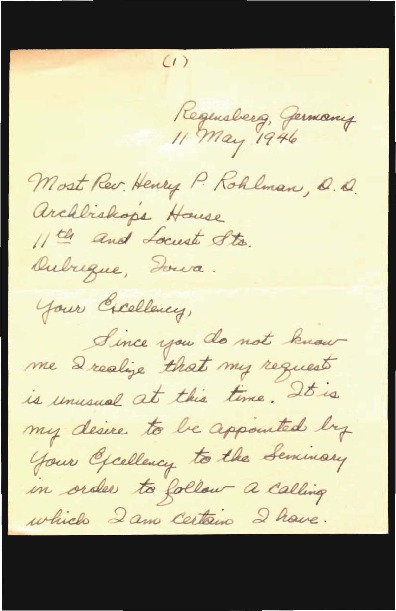 (1)
Regensberg, Germany
11 May 1946
Most Rev. Henry P. Rohlman, D.D.
Archbishop's House
11th and Locust Sts.
Dubuque, Iowa.
Your Excellency,
Since you do not know
me I realize that my request
is unusual at this time. It is
my desire to be appointed by
Your Excellency to the Seminary
in order to follow a calling
which I am certain I have.